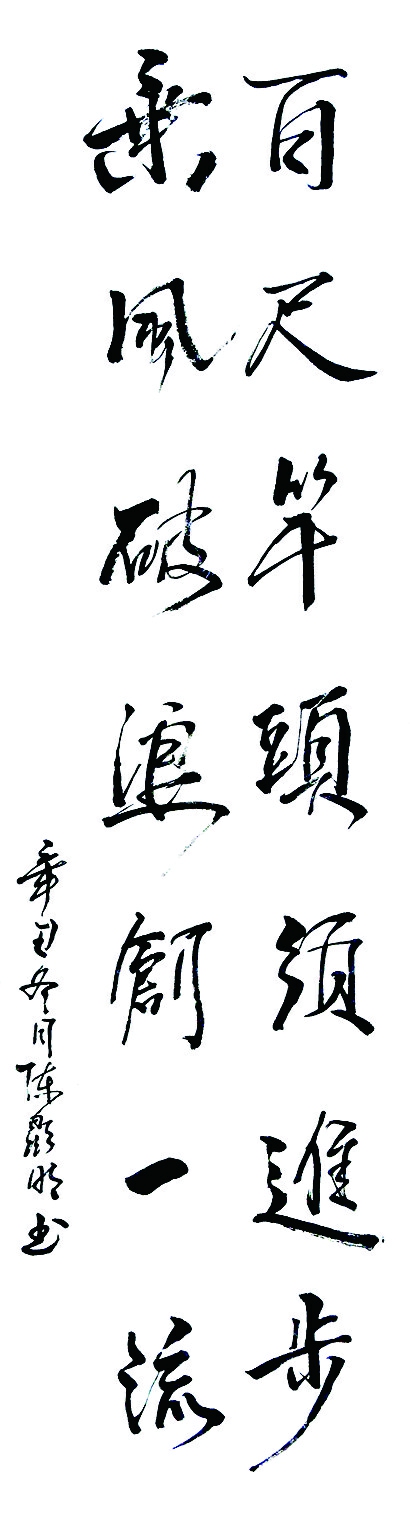 百尺竿頭須進步
乘風破浪創一流
辛丑冬月陳顯明書